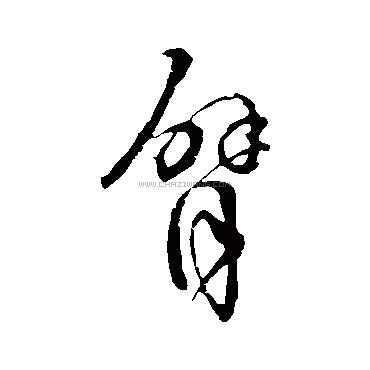 臂
WWW.CHAZIWANG.COM